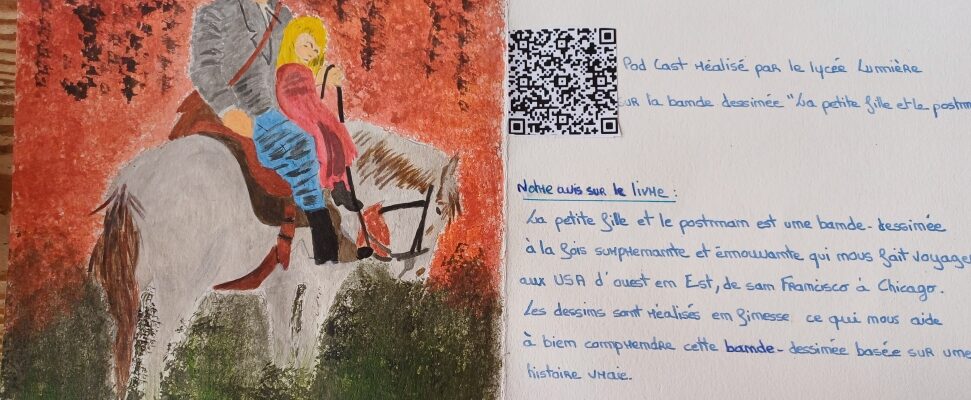 Pod Cast réalisé par le lycée Lumière
sur la bande dessinée "La petite fille et le postman
Notre avis sur le livre :
La petite fille et le postman est une bande-dessinée
à la fois surprenante et émouvante qui nous fait voyage
aux USA d'ouest en Est, de san Francisco à Chicago.
Les dessins sont réalisés en finesse ce qui nous aide
à bien comprendre cette bande-dessinée basée sur une
histoire vraie.